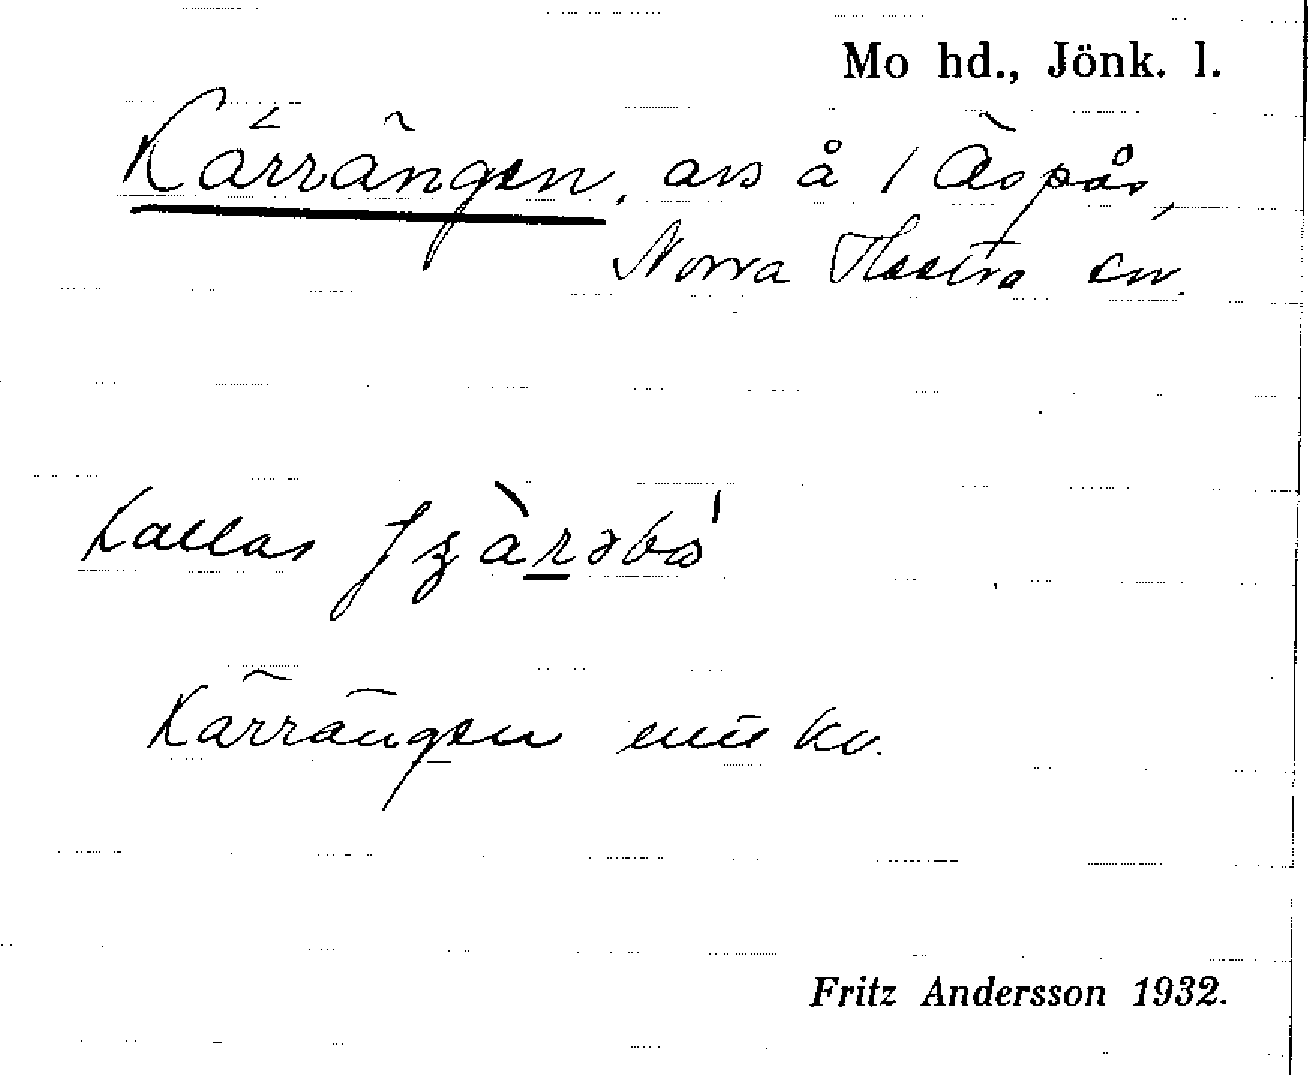 Mo hd., Jönk. l.
Kärrängen, avs å 1 Äspås,
Norra Hestra sn.
Kallas
Kärrängen enl. kv.
Fritz Andersson 1932.